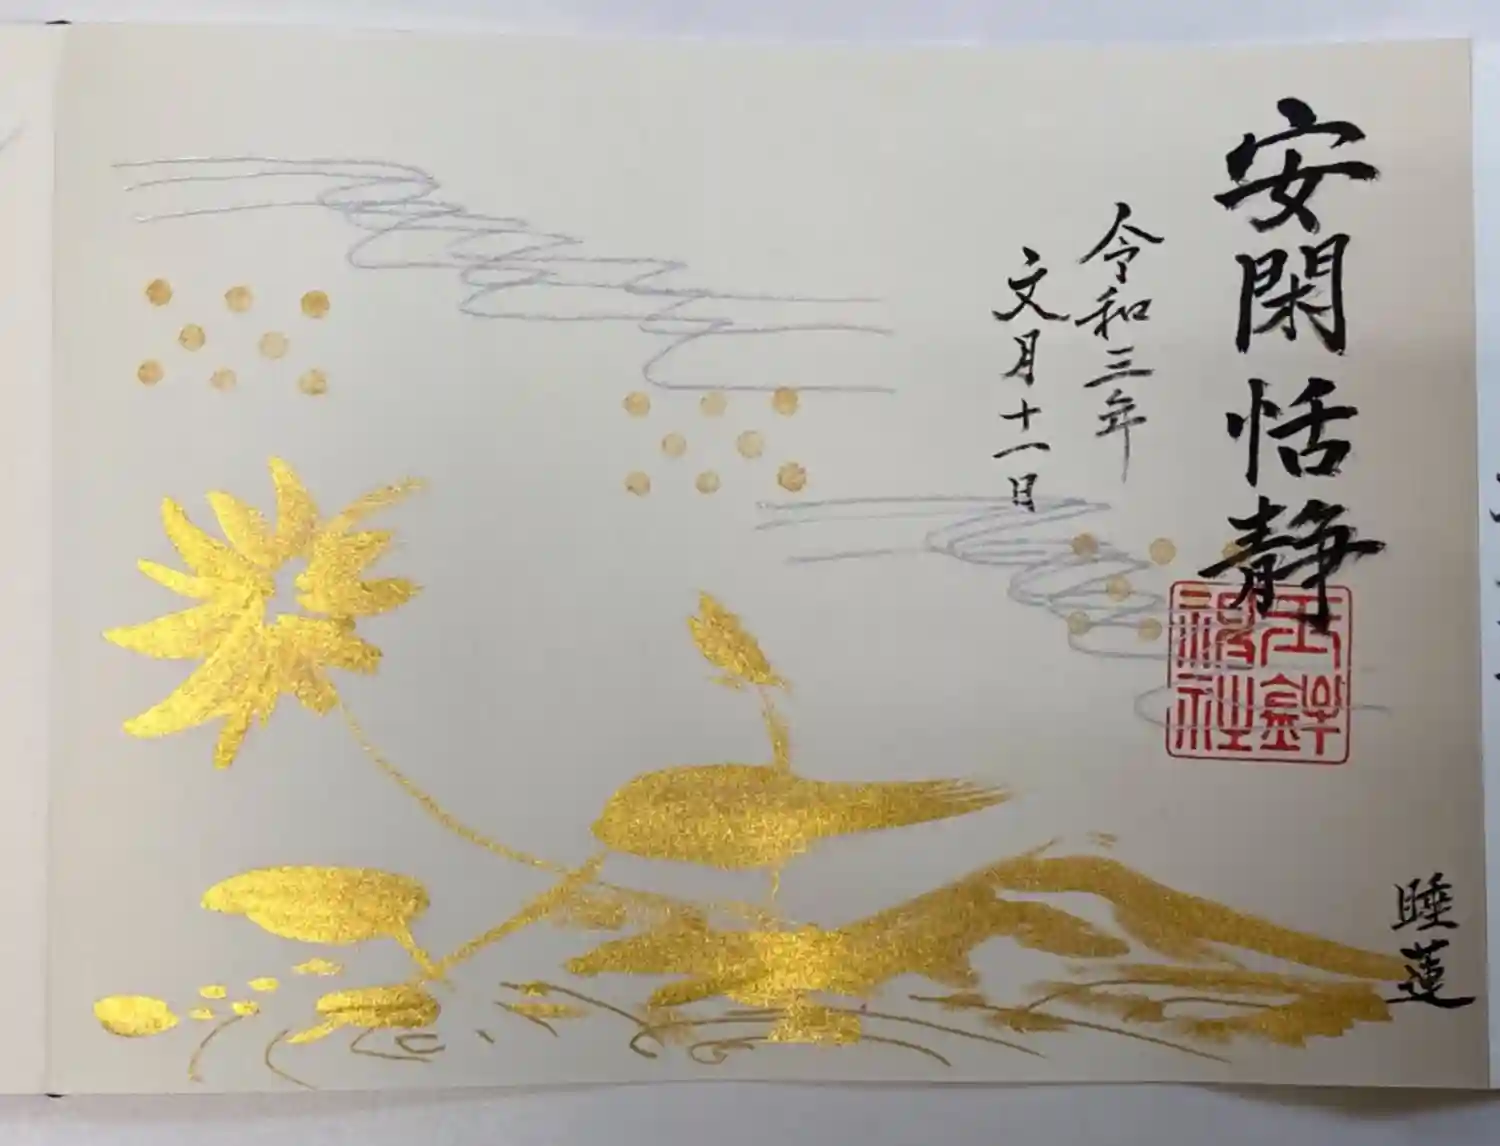 安閑恬静
令和三年
文月十一日
睡蓮